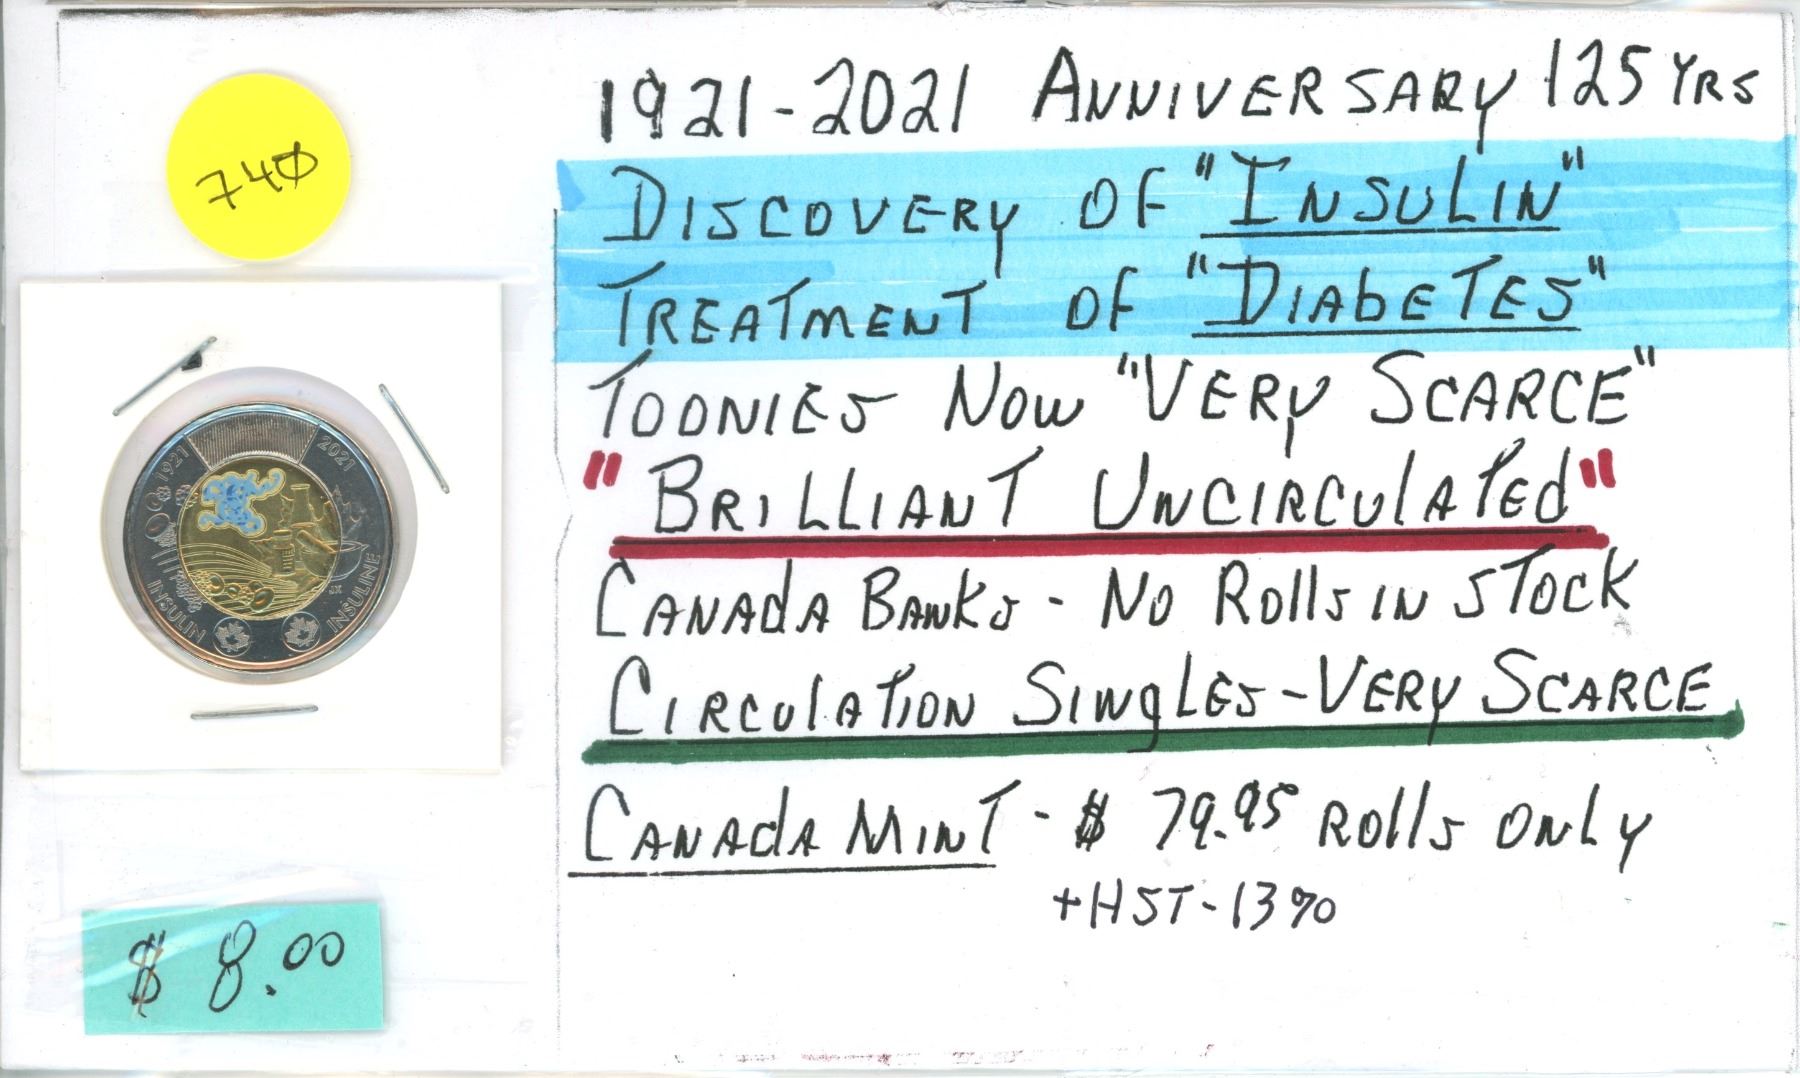 740
1921-2021 ANNIVERSARY 125 YRS
DISCOVERY OF "INSULIN"
TREATMENT OF "DIABETES"
TOONIES NOW "VERY SCARCE"
"BRILLIANT UNCIRCULATED"
CANADA BANKS - NO ROLLS IN STOCK
CIRCULATION SINGLES - VERY SCARCE
CANADA MINT - $ 79.95 ROLLS ONLY
+HST - 13%
1921
2021
INSULIN
INSULINE
JK
$ 8.00